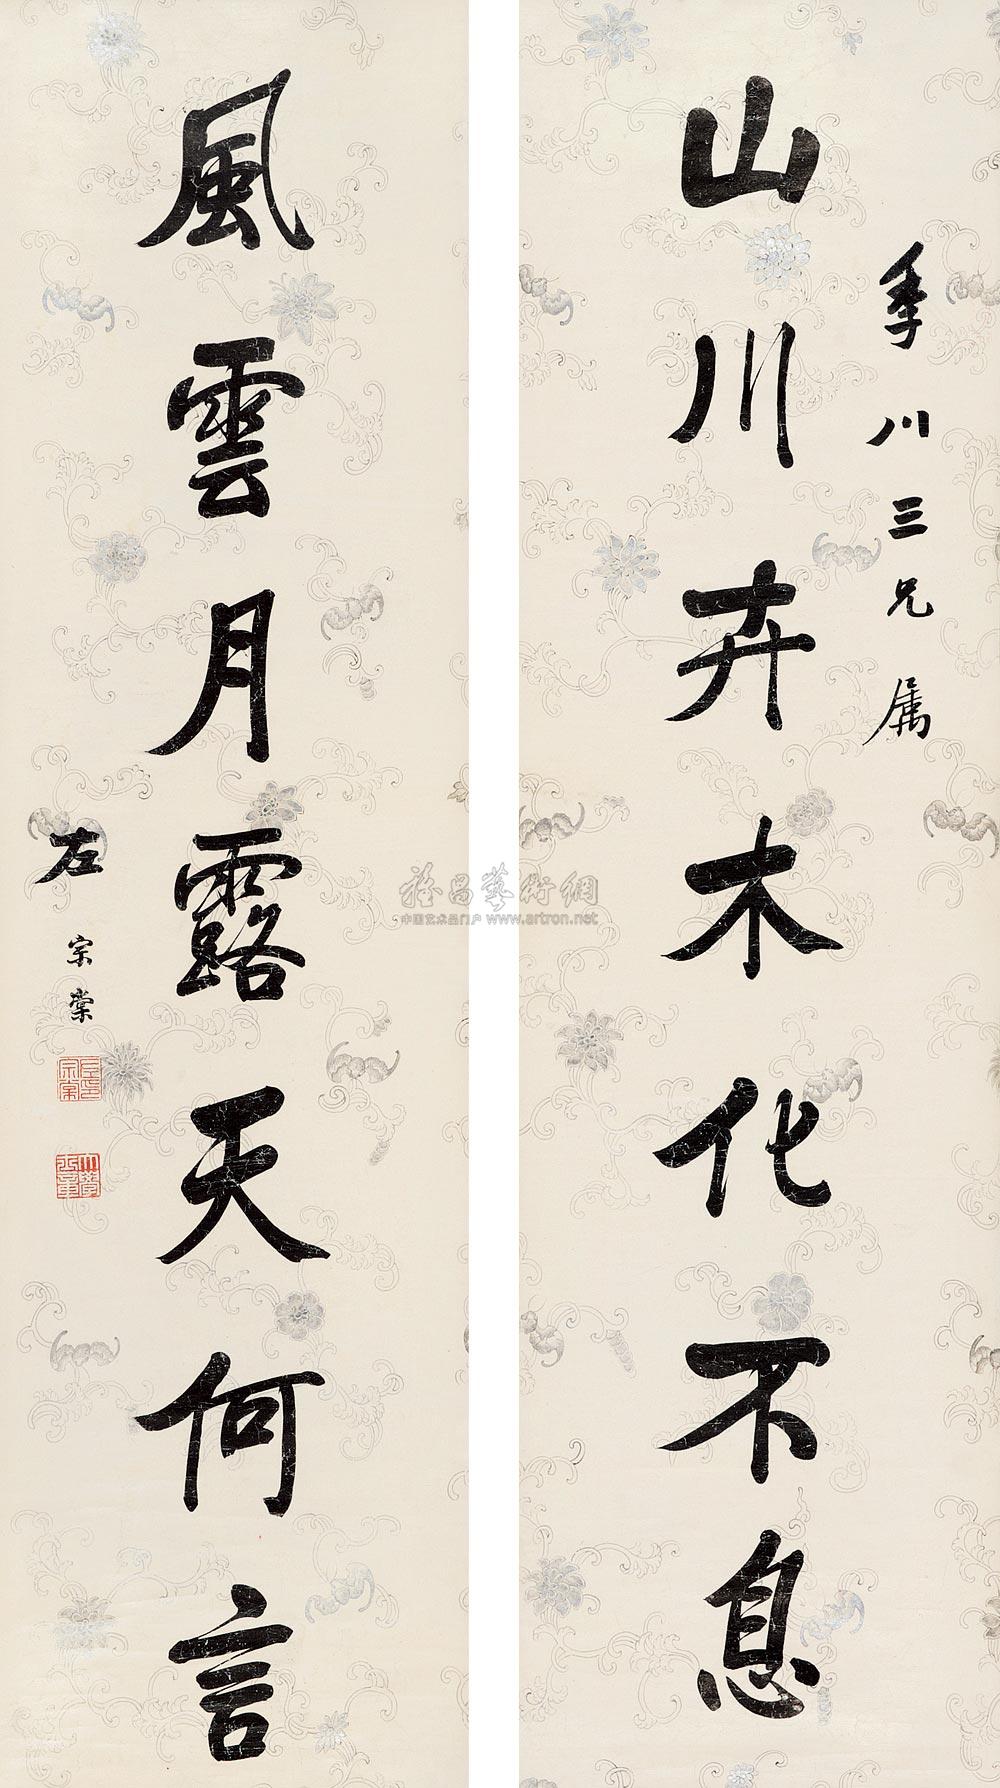 季川三兄属
山川卉木化不息
風雲月露天何言
左宗棠
雅昌藝術網
中国艺术品门户 www.artron.net